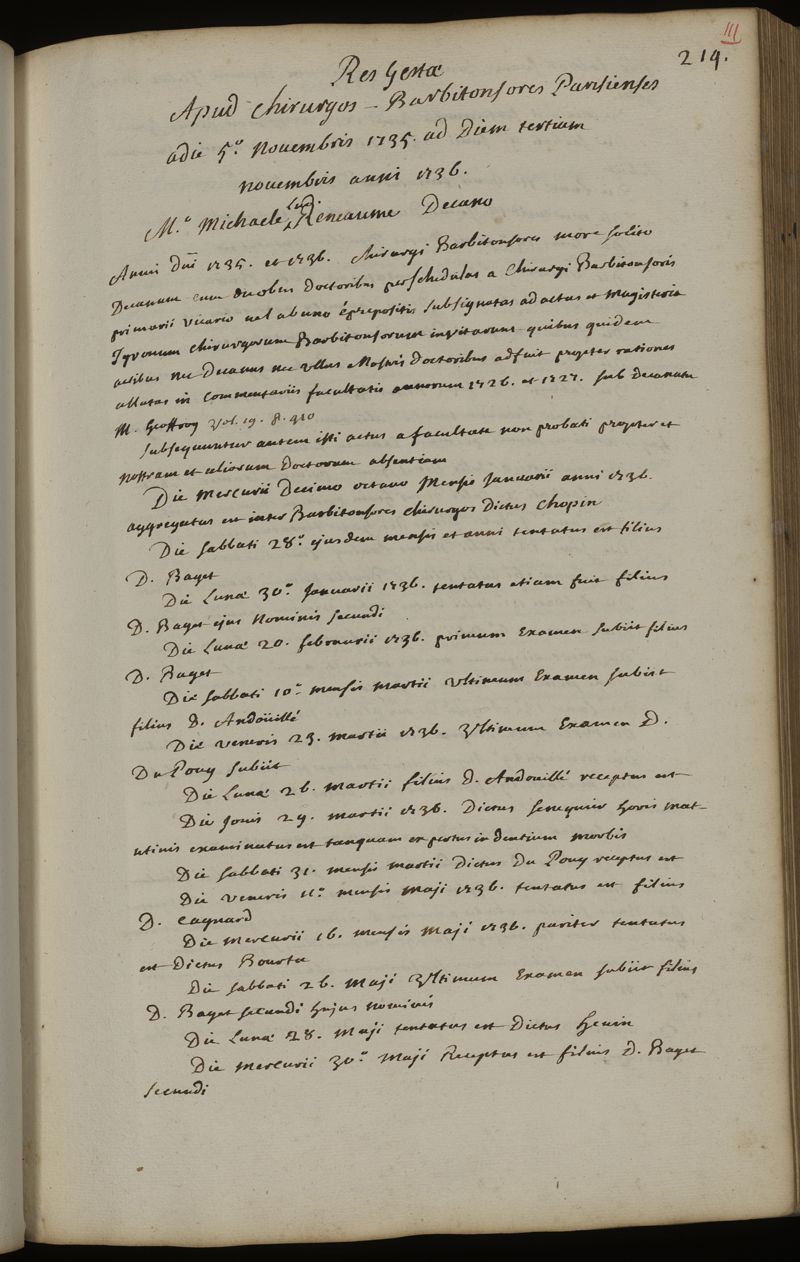 III
219.
Res Gestæ
Apud chirurgos - Barbitonsores Parisienses
a die 5.ᵃ Novembris 1735. ad Diem tertium
novembris anni 1736.
M.ᵒ Michaele Lud. Reneaume Decano
Anni Dni 1735. et 1736. chirurgi Barbitonsores more solito
Decanum cum duobus Doctoribus per schedulas a Chirurgi Barbitonsoris
primarii vicario vel ab uno é præpositis subsignatas ad actus et Magisteria
Tyronum chirurgorum Barbitonsorum invitarunt quibus quidem
actibus nec Decanus nec ullus e Nostris Doctoribus adfuit propter rationes
allatas in Commentariis facultatis annorum 1726. et 1727. sub Decanatu
M. Geoffroy Vol. 19. p. 910
Subsequuntur autem isti actus a facultate non probati propter et
nostram et aliorum Doctorum absentiam
Die Mercurii Decimo octavo Mensis Januarii anni 1736.
aggregatus est inter Barbitonsores chirurgos Dictus Chopin
Die sabbati 28.ᵃ ejusdem mensis et anni tentatus est filius
D. Baget
Die Lunæ 30.ᵃ Januarii 1736. tentatus etiam fuit filius
D. Baget ejus Nominis secundi
Die Lunæ 20. februarii 1736. primum Examen subiit filius
D. Baget
Die sabbati 10.ᵃ mensis martii Ultimum Examen subiit
filius D. Andoüillé
Die veneris 23. martii 1736. Ultimum Examen D.
Du Pouy subiit
Die Lunæ 26. martii filius D. Andouillé receptus est
Die jovis 29. martii 1736. Dictus senequier horis mat-
utinis examinatus est tanquam expertus in dentium morbis
Die sabbati 31. mensis martii Dictus Du Pouy receptus est
Die veneris 11.ᵃ mensis Maji 1736. tentatus est filius
D. Cagnard
Die Mercurii 16. mensis Maji 1736. pariter tentatus
est Dictus Bourtu
Die sabbati 26. Maji Ultimum Examen subiit filius
D. Baget secundi hujus nominis
Die Lunæ 28. Maji tentatus est Dictus Hevin
Die Mercurii 30.ᵃ Maji Receptus est filius D. Baget
secundi